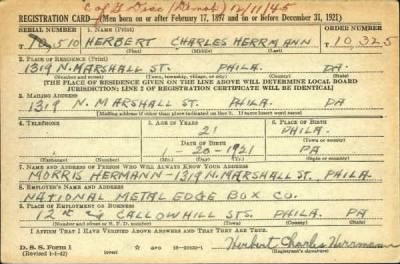 C of G Disc (Demob) 12/11/45
REGISTRATION CARD—(Men born on or after February 17, 1897 and on or before December 31, 1921)
SERIAL NUMBER 1. NAME (Print) ORDER NUMBER
T 10,510 HERBERT CHARLES HERRMANN T 10,325
(First) (Middle) (Last)
2. PLACE OF RESIDENCE (Print)
1319 N. MARSHALL ST. PHILA. PA
(Number and street) (Town, township, village, or city) (County) (State)
[THE PLACE OF RESIDENCE GIVEN ON THE LINE ABOVE WILL DETERMINE LOCAL BOARD
JURISDICTION; LINE 2 OF REGISTRATION CERTIFICATE WILL BE IDENTICAL]
3. MAILING ADDRESS
1319 N. MARSHALL ST. PHILA. PA
(Mailing address if other than place indicated on line 2. If same insert word same)
4. TELEPHONE 5. AGE IN YEARS 6. PLACE OF BIRTH
21 PHILA.
DATE OF BIRTH (Town or county)
20 - 1921 PA
(Exchange) (Number) (Mo.) (Day) (Yr.) (State or country)
7. NAME AND ADDRESS OF PERSON WHO WILL ALWAYS KNOW YOUR ADDRESS
MORRIS HERMANN—1319 N. MARSHALL ST., PHILA.
8. EMPLOYER'S NAME AND ADDRESS
NATIONAL METAL EDGE BOX CO.
9. PLACE OF EMPLOYMENT OR BUSINESS
12TH & CALLOWHILL STS. PHILA. PA
(Number and street or R. F. D. number) (Town) (County) (State)
I AFFIRM THAT I HAVE VERIFIED ABOVE ANSWERS AND THAT THEY ARE TRUE.
D. S. S. Form 1
(Revised 1-1-42) (over) GPO Herbert Charles Herrmann
(Registrant's signature)